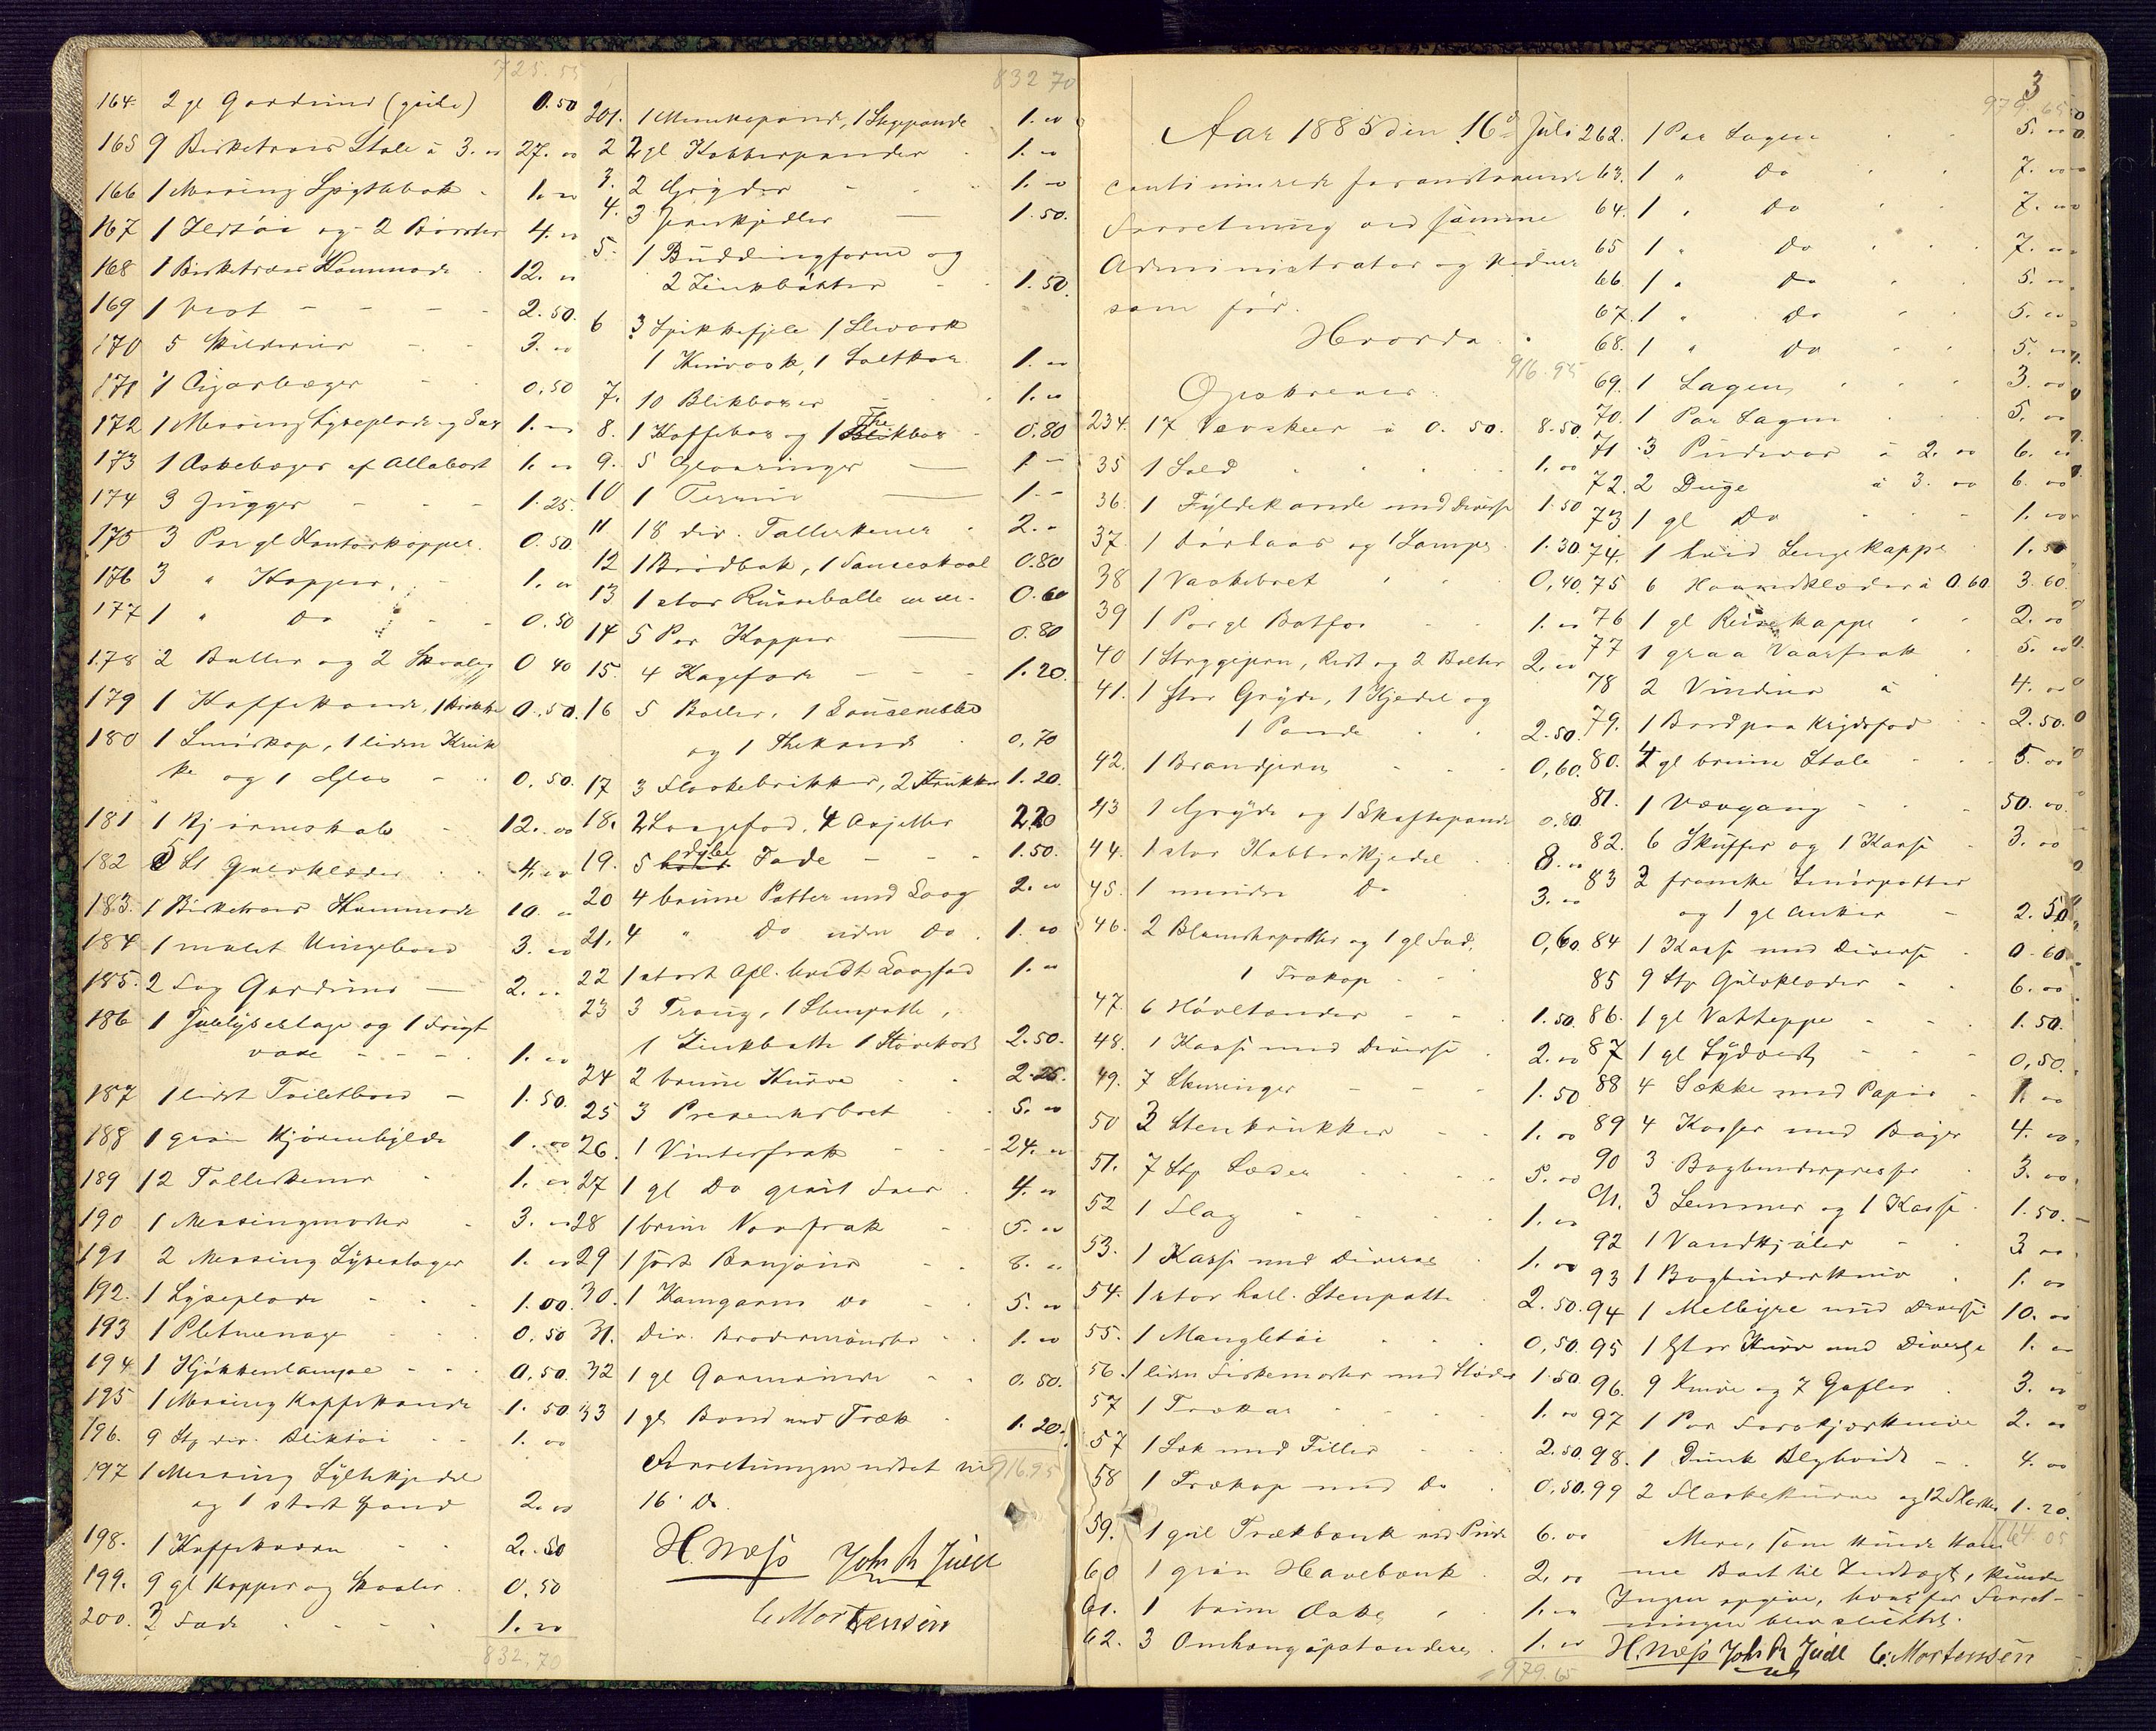 725.55
164. 2 gl Gardiner (gule) 0.50
165 9 Birketræes Stole à 3.00 27.00
166 1 Messing 1.00
167 1 Ildtøi og 2 Børster 4.00
168 1 Birketræes Kommode 12.00
169 1 2.50.
170 5 Skilderier 3.00
171 1 Cigarbæger 0.50
172 1 Messing Lyseplade og Sax 1.00
173 1 Askebæger af Allabast 1.00
174 3 Jugger 1.25.
175 3 Par gl Kontorkopper. 0.50.
176 3 " Kopper. 1.00
177 1 " Do 0.50
178 2 Boller og 2 Skaaler 0 40
179 1 Kaffekande, 1 Krukke 0.50.
180 1 Smørkop, 1 liden Kruk
ke og 1 Glas 0.50.
181 1 Bjørneskab 12.00
182 5 St Gulvklæder 4.00
183. 1 Birketræes Kommode 10.00
184 1 malet Vingebord 3.00
185. 2 Fag Gardiner 2.00
186 1 Julelysestage og 1 Frugt
vase 1.00
187 1 lidet Toiletbord 1.50.
188 1 grøn Hjørnehylde 1.00
189 12 Tallerkener 1.00
190 1 Messingmorter 3.00
191 2 Messing Lysestager 1.00
192. 1 Lyseplade 1.00.
193 1 Pletmenage 0.50
194 1 Kjøkkenlampe 0.50.
195 1 Messing Kaffekande 1.50
196. 9 Stp div. Bliktøi 1.00
197 1 Messing Syltekjedel
og 1 stort Spand 2.00
198. 1 Kaffekværn 2.50
199. 9 gl Kopper og Skaaler. 0.50
200. 3 Fade 1.00
832,70
832 70
201. 1 Munkepande, 1 Stegepande 1.00
2 2 gl Kobberpander 1.00
3. 2 Gryder 1.00
4. 3 Jernkjedler 1.50.
5. 1 Buddingform og
2 Zinkbøtter 1.50.
6 3 Spikkefjele 1
1 1 Saltkar 1.00
7. 10 Blikboxer 1.00
8. 1 Kaffebox og 1 Thebox 0.80
9. 5 1 -
10 1 Terrin 1.-
11 18 div. Tallerkener 2.-
12 1 Brødbak, 1 Sauceskaal 0.80
13 1 stor Rüssebolle 0.60
14 5 Par Kopper 0.80
15. 4 Kagefade 1.20.
16 5 Boller, 1
og 1 Thekande 0,70
17 3 Flaskebrikker, 2 Krukker 1.20.
18. 2 Laagefad. 4 Asjetter 2.20
19. 5 dybe Fade 1.50.
20 4 brune Potter med Laag 2.00
21. 4 " Do uden Do. 1.00
22 1 stort Laagfad 1.00
23 3 Traug, 1 Stenpotte,
1 Zinkbøtte 1 2.50.
24 2 brune Kurve 2.25.
25 3 Presenterbret 5.00
26. 1 Vinterfrak 24.00
27 1 gl Do graat Foer 4.00
28 1 brun Vaarfrak 5.00
29 1 sort Bonjour 8.00
30. 1 Kamgarns Do 5.00
31. Div. Brodermønster 1.00
32 1 gl 0.50.
33 1 gl Bord med Træk 1.20.
Forretningen udsat til 916.95
16. Ds.
H. Næss Joh. A. Juell
C. Mortensen
3
979.65
Aar 1885 den 16d Juli
continuerede foranstaaende
Forretning ved samme
Administrator og Vidner
som før.
Hvorda
Opskreves. 916.95
234. 17 Vævskeer à 0.50. 8.50.
35 1 Sold 1.00
36. 1 Fyldekande med Diverse 1.50
37. 1 Dørlaas og 1 Lampe 1.30.
38 1 Vaskebret 0,40.
39 1 Par gl Botfor 1.00
40 1 Strygejern, Rist og 2 Bolter 2.00
41. 1 stor Gryde, 1 Kjedel og
1 Pande 2.50.
42. 1 Brændjern 0,60.
43 1 Gryde og 1 Skaftepande 0.80.
44. 1 stor Kobberkjedel 8.00
45. 1 mindre Do 3.00
46. 2 Blomsterpotter og 1 gl Fad, 0,60.
1 Trækop
47. 6 Høveltænder 1.50.
48. 1 Kasse med Diverse 2.00
49. 7 Skuringer 1.50
50 3 Stenkrukker 1.00
51. 7 Stp Læder 5.00
52 1 Flag 1.00
53. 1 Kasse med Diverse 1.00
54. 1 stor holl. Stenpotte 2.50.
55. 1 Mangletøi 0,50.
56. 1 liden Fiskemorter med Støder 1.50.
57 1 Trækar 1.00
57 1 Sæk med Filler 2.50
58 1 Trækop med Do 0.50.
59. 1 gul Trækbænk med Pude 6.00
60 1 grøn Havebænk 2.00
61. 1 brun Æske 1.00
62. 3 Omhængspstandere 1.00
979.65
262. 1 Par Lagen 5.00
63. 1 " Do 7.00
64. 1 " Do 7.00
65 1 " Do 7.00
66. 1 " Do 5.00
67. 1 " Do 5.00
68. 1 " Do 5.00
69. 1 Lagen 3.00
70. 1 Par Lagen 5.00
71 3 Pudevar à 2.00 6.00
72. 2 Duge à 3.00 6.00
73 1 gl Do 1.00
74. 1 hvid Sengekappe 1.50
75 6 Haandklæder à 0.60. 3.60.
76 1 gl Reisekappe 2.00
77 1 graa Vaarfrak 5.00
78 2 Vinduer à 4.00
79. 1 Bord paa Krydsfod 2.50.
80. 4 gl brune Stole 5.00
81. 1 Vævgang 50.00
82. 6 Skuffer og 1 Kasse 3.00
83 2 franske Smørpotter
og 1 gl Anker 2.50
84 1 Kasse med Diverse 0.60
85 9 Stp Gulvklæder 6.00
86. 1 gl Vatteppe 1.50.
87 1 gl Sydvest 0,50.
88 4 Sække med Papir 1.00
89 4 Kasser med Bøger 4.00
90 3 Bogbinderpresser 3.00
91. 3 Lemmer og 1 Kasse. 1.50.
92 1 Vandkjøler 3.00
93 1 Bogbinderkniv 1.00
94 1 Melbyre med Diverse 10.00
95 1 stor Kurv med Diverse 1.00
96. 9 Knive og 7 Gafler 3.00
97 1 Par Forskjærknive 2.00
98. 1 Dunk Blyhvidt 4.00
99 2 Flaskekurve og 12 Flasker 1.20.
1164.05
Mere, som kunde kom
me Boet til Indtægt, kunde
Ingen opgive, hvorfor Forret-
ningen blev sluttet.
H. Næss Joh. A. Juell C. Mortensen